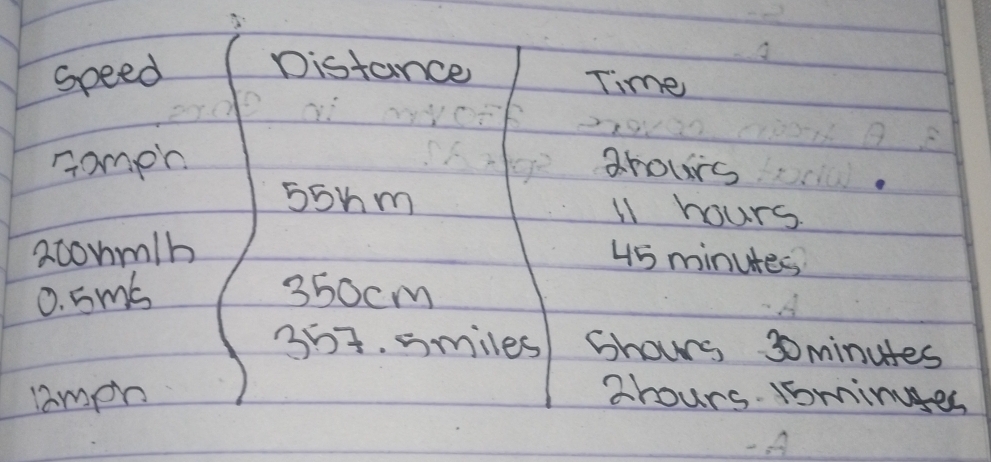 Speed Distance Time
70mph 2hours
55km 11 hours.
200km/h 45 minutes
0.5m/s 350cm
357.5miles 5hours 30minutes
12mph 2hours. 15minutes